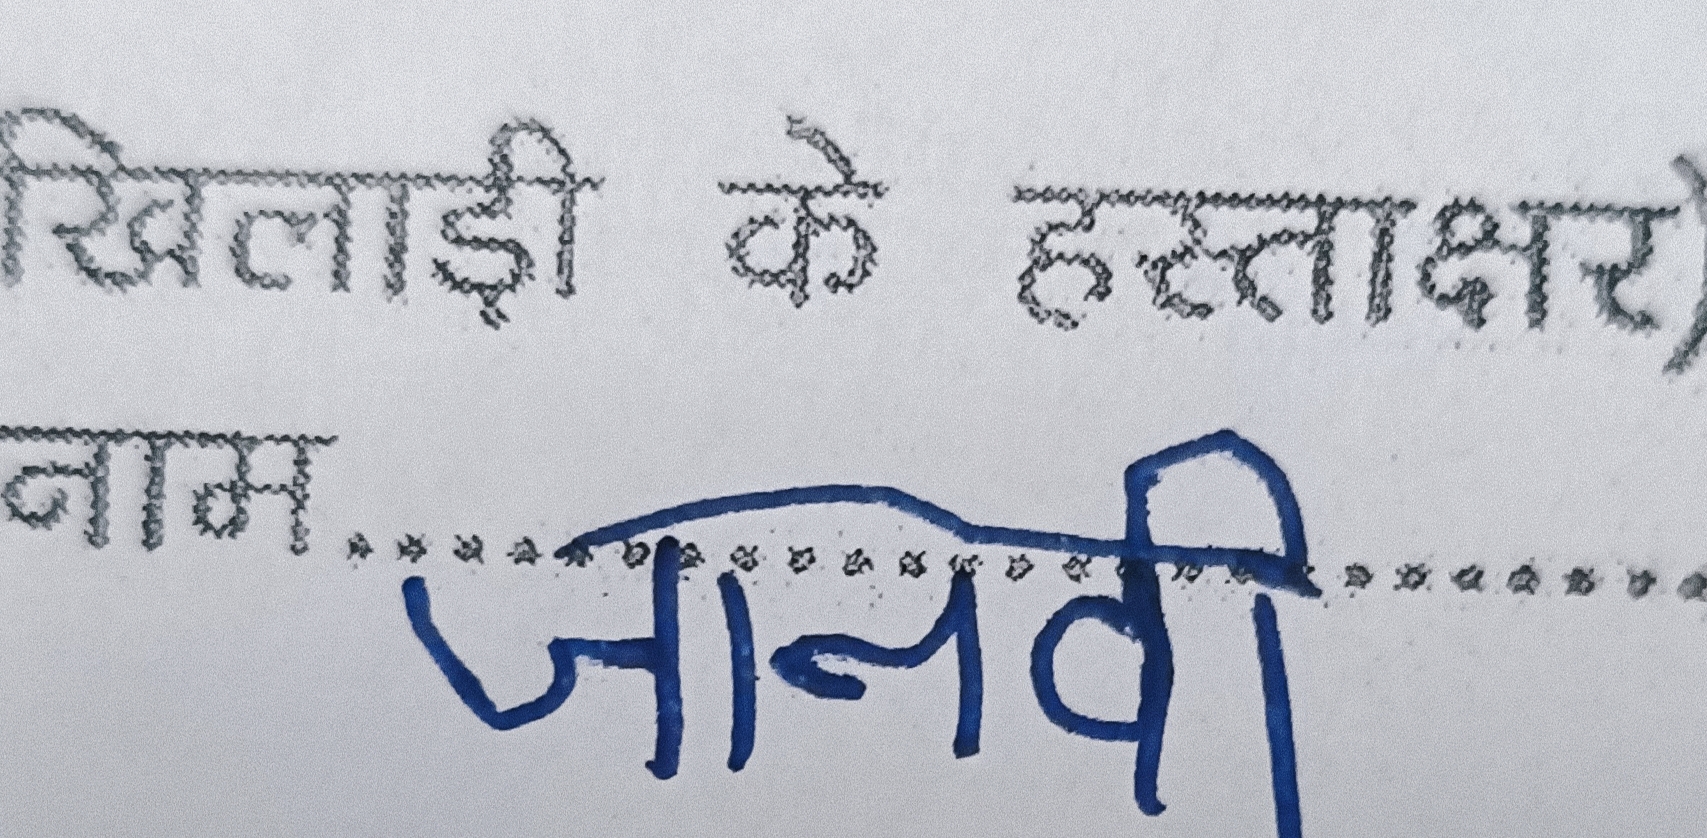 खिलाड़ी के हस्ताक्षर)
नाम .................. जानवी